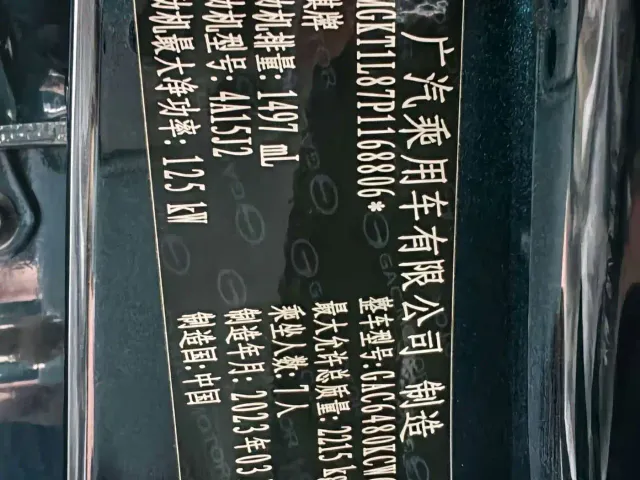 广汽乘用车有限公司 制造
MGKT1L87P1168806*
牌
整车型号:GAC6480KCW
机排量:1497 mL
最大允许总质量:2215 kg
机型号:4A15J2
乘坐人数:7人
机最大净功率:125 kW
制造年月:2023年03
制造国:中国